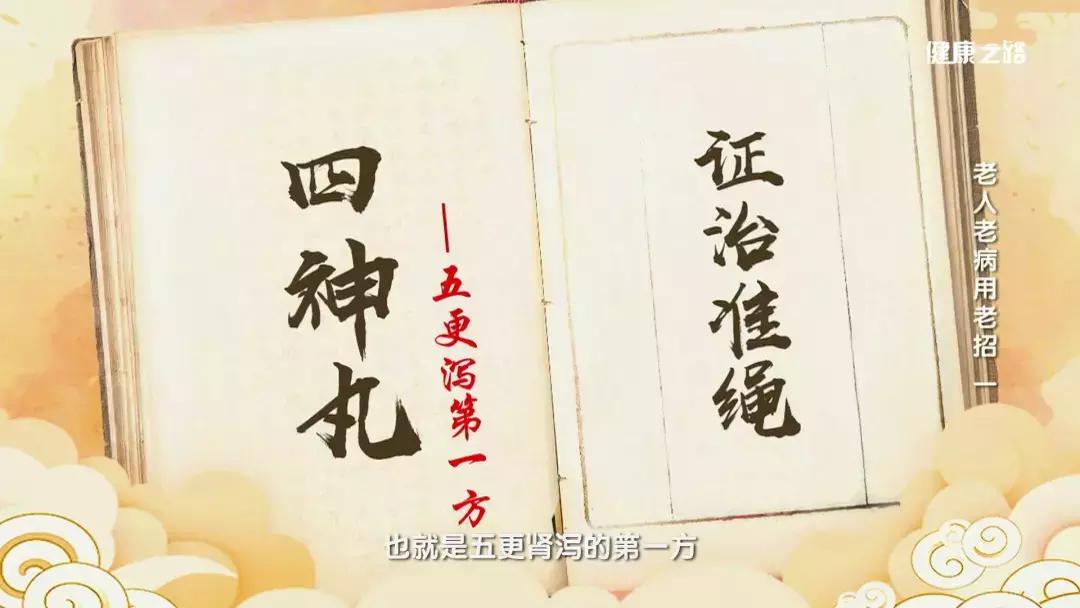 健康之路
老人老病用老招 一
证治准绳
四神丸
—五更泻第一方
也就是五更肾泻的第一方